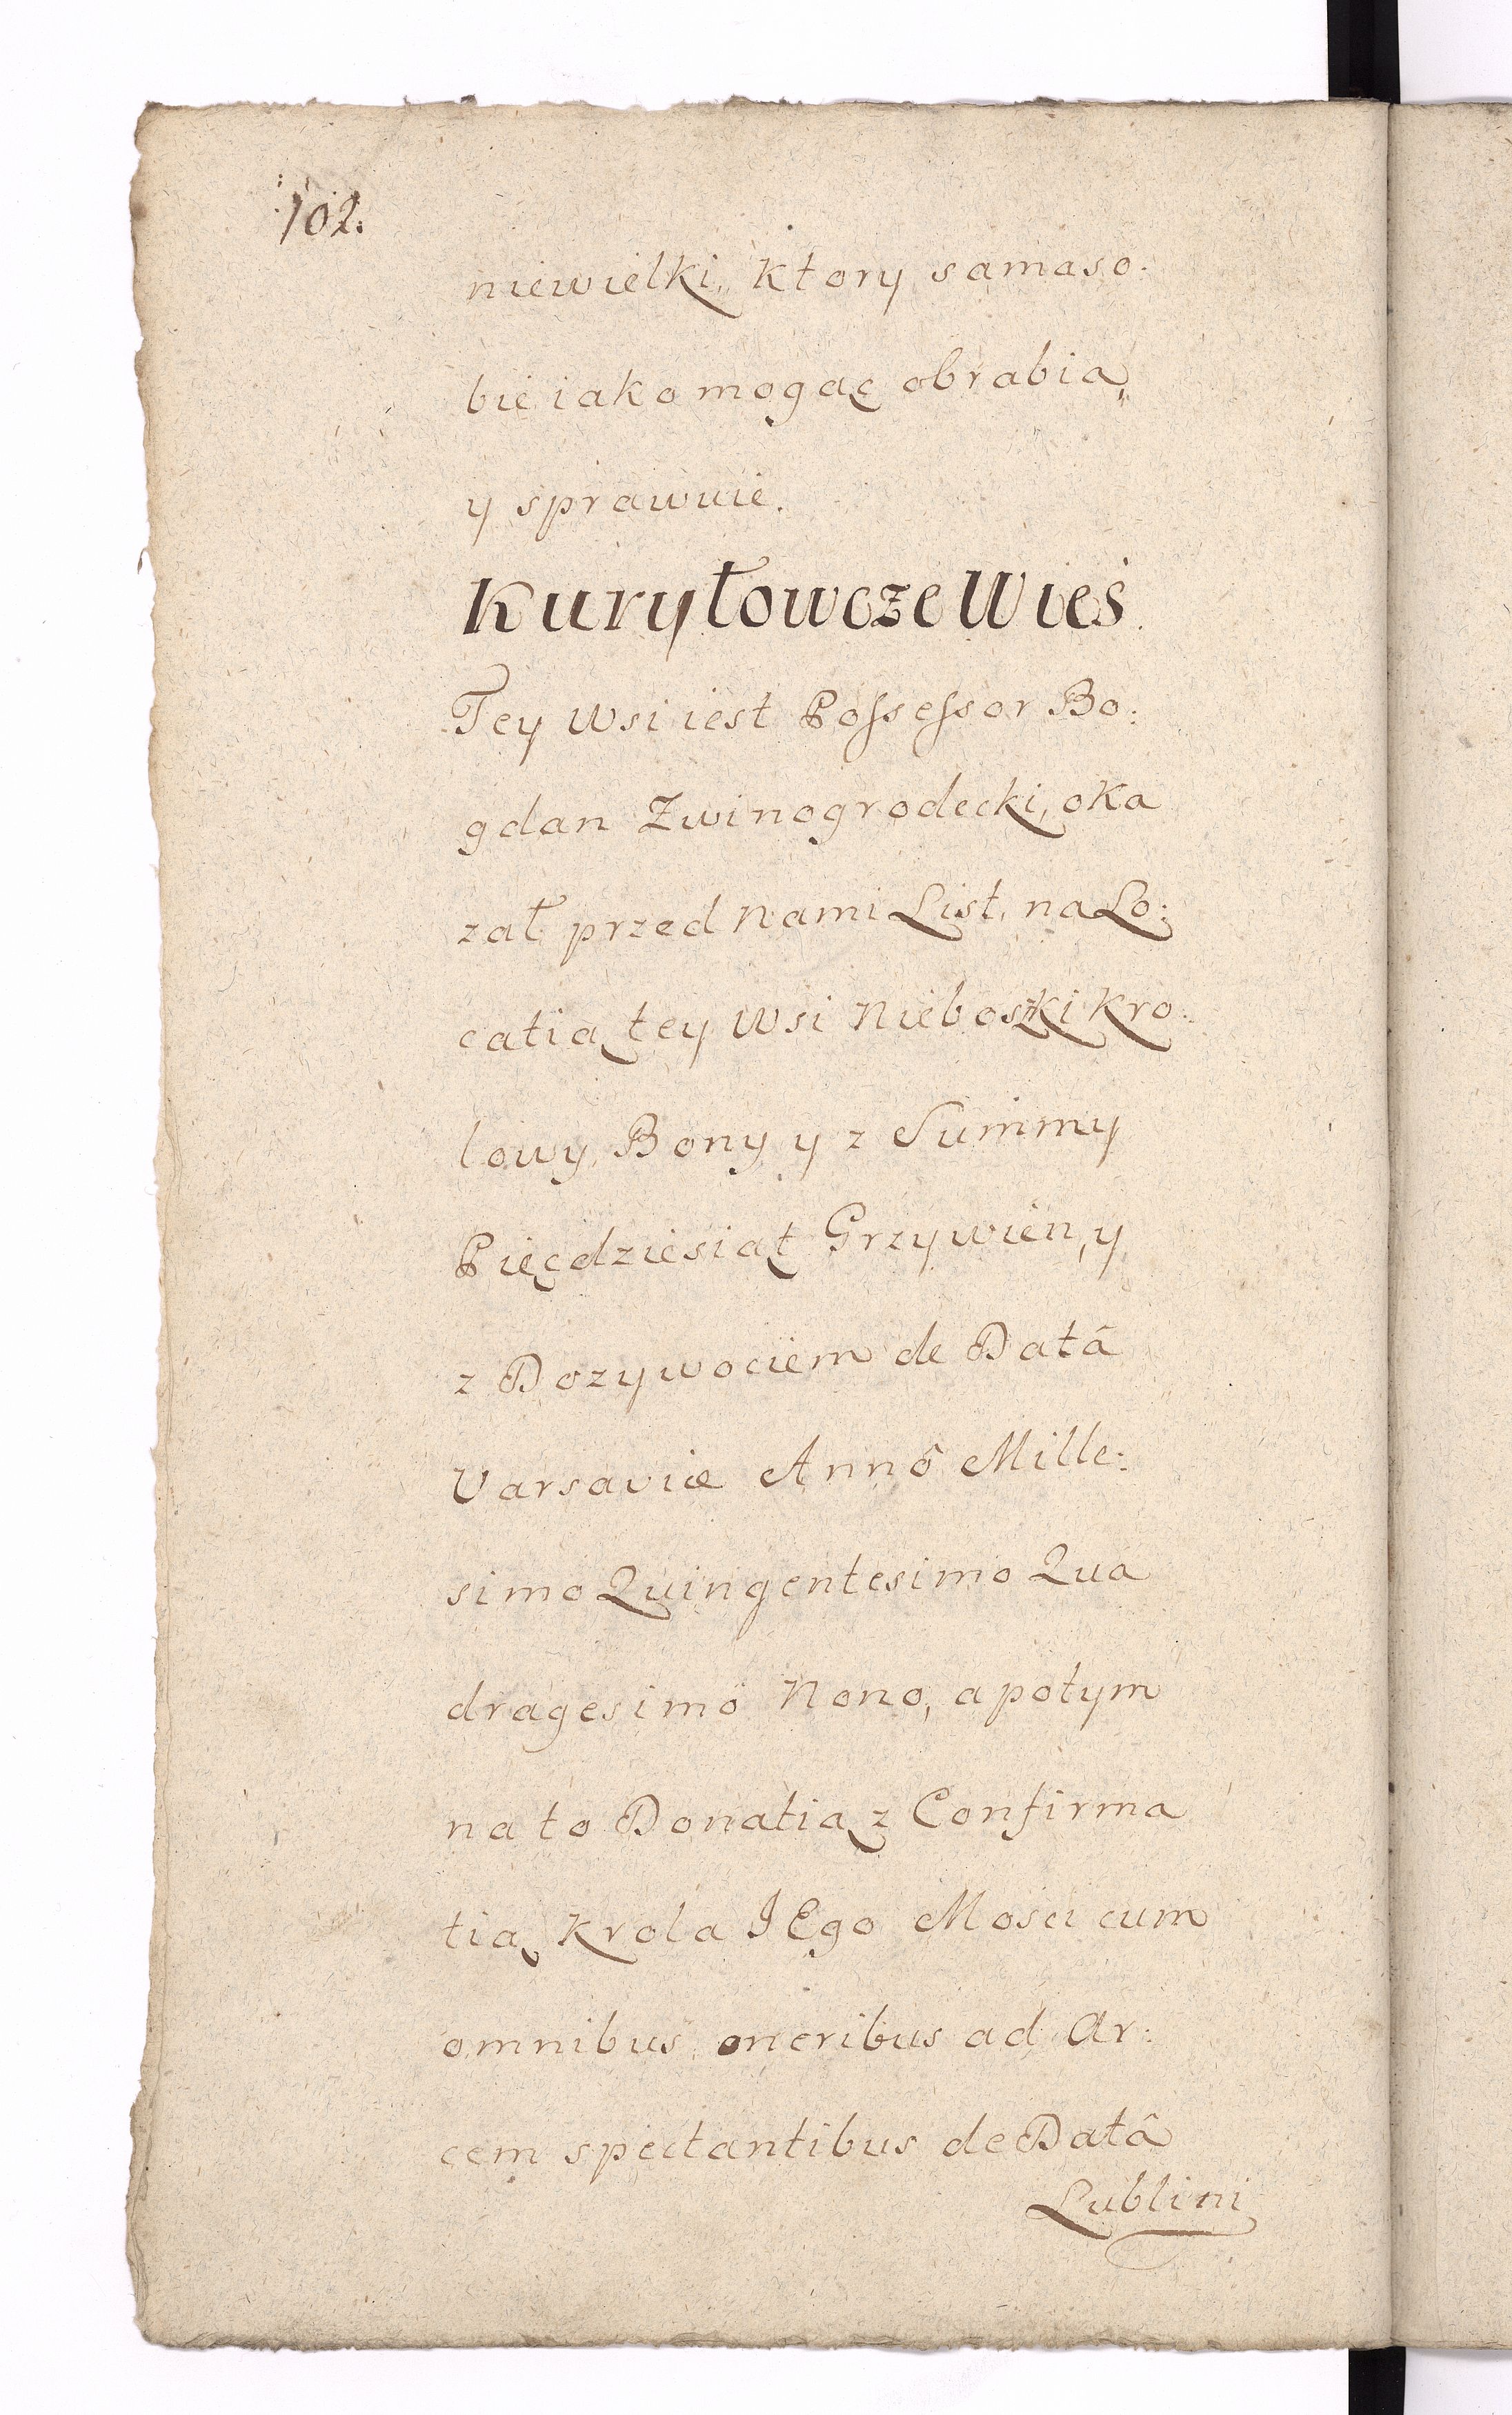 102.
niewielki, ktory samaso:
bie iako mogąc obrabia,
y sprawuie.
Kuryłowcze Wieś
Tey Wsi iest Possessor Bo:
gdan Zwinogrodecki, oka
zał przed Nami List, na Lo:
catią tey Wsi Nieboszki Kro:
lowy Bony y z Summy
Pięcdziesiąt Grzywien, y
z Dozywociem de Datâ
Varsaviæ Annô Mille:
simo Quingentesimo Qua
dragesimo Nono, a potym
na to Donatią z Confirma
tią Krola JEgo Mosci cum
omnibus oneribus ad Ar:
cem spectantibus de Datâ
Lublini